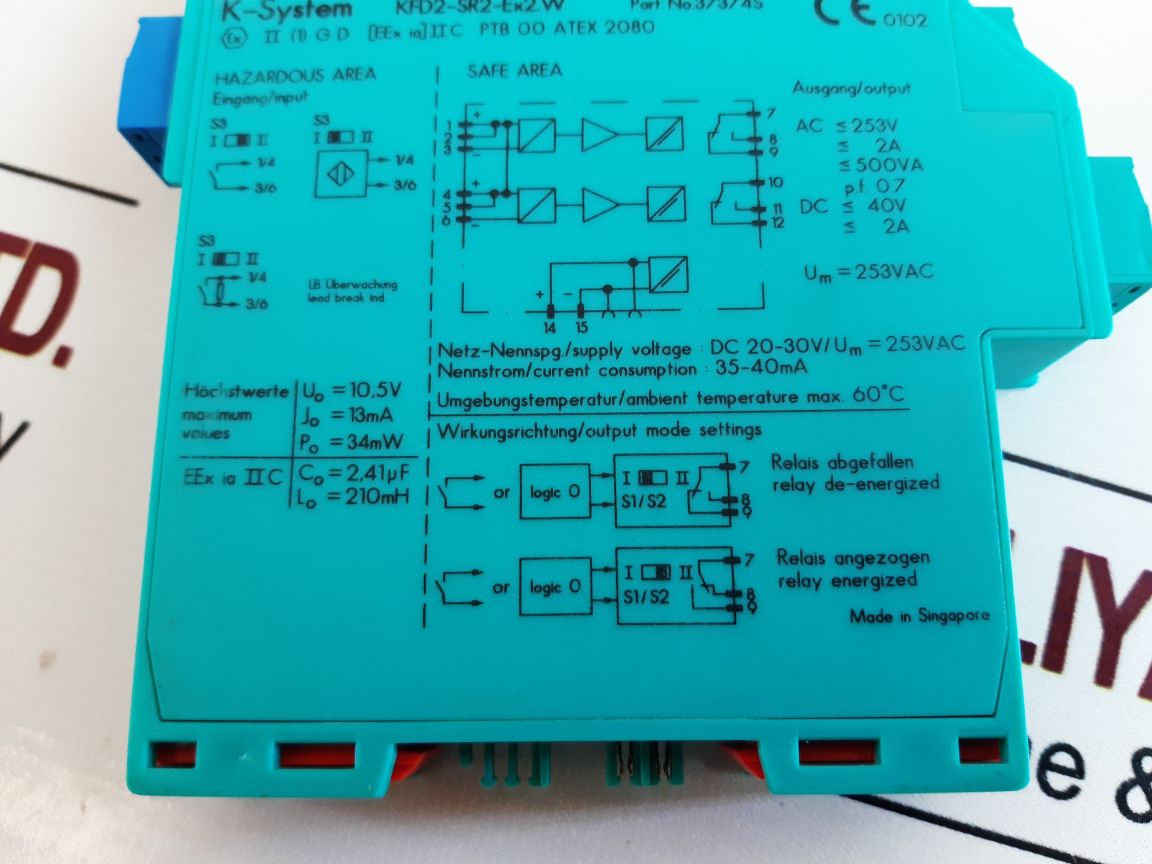 K-System KFD2-SR2-Ex2.W Part No.37374S
Ex II (1) G D [EEx ia] II C PTB 00 ATEX 2080
CE 0102
HAZARDOUS AREA
Eingang/input
S3
I II
1/4
3/6
S3
I II
1/4
3/6
S3
I II
1/4
3/6
LB Überwachung
lead break ind.
SAFE AREA
1 +
2
3 -
4 +
5
6 -
7
8
9
10
11
12
+ -
14 15
Ausgang/output
AC ≤ 253V
≤ 2A
≤ 500VA
p.f. 0.7
DC ≤ 40V
≤ 2A
Um = 253VAC
Netz-Nennspg./supply voltage : DC 20-30V/Um = 253VAC
Nennstrom/current consumption : 35-40mA
Umgebungstemperatur/ambient temperature max. 60°C
Höchstwerte
maximum
values
Uo = 10,5V
Jo = 13mA
Po = 34mW
EEx ia II C
Co = 2,41µF
Lo = 210mH
Wirkungsrichtung/output mode settings
or
logic 0
I II
S1/S2
7
8
9
Relais abgefallen
relay de-energized
or
logic 0
I II
S1/S2
7
8
9
Relais angezogen
relay energized
Made in Singapore
TD.
y
LIY
e &